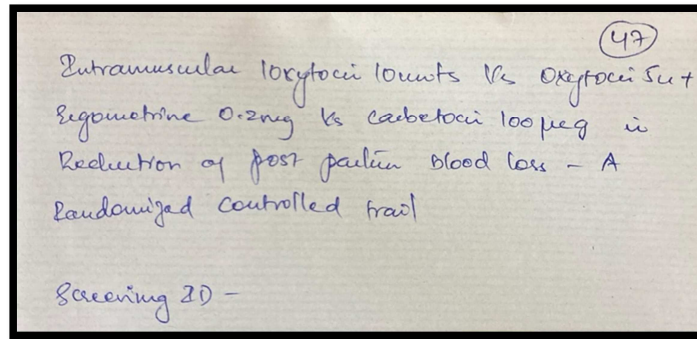 47
Intramuscular loxytocin 10units Vs Oxytocin 5u +
Ergometrine 0.2mg Vs carbetocin 100 µcg in
Reduction of post partum Blood loss - A
Randomized Controlled trail
Screening ID -